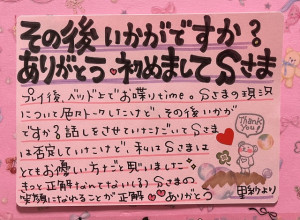 その後いかがですか?
ありがとう初めましてSさま
プレイ後、ベッド上でお喋りtime。Sさまの現況
についてトークしたけど、その後いかが
ですか?話しをさせていただいてSさま
は否定していたけど、私はSさまは
とてもお優しい方だと思いました
きっと正解なんてない(笑)Sさまの
笑顔になれることが正解 ありがとう
より
Thank
You!